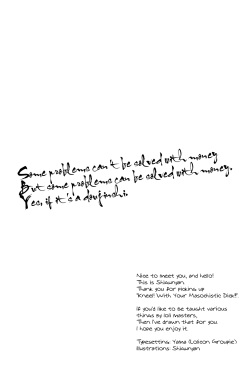 Some problems can't be solved with money
But some problems can be solved with money.
Yes, if it's a doujinshi.
Nice to meet you, and hello!
This is Shiawgan.
Thank you for picking up
"Kneel! With Your Masochistic Disk!!"
If you'd like to be taught various
things by loli masters,
Then I've drawn that for you.
I hope you enjoy it.
Typesetting: Yama (Lolicon Groupie)
Illustrations: Shiawgan